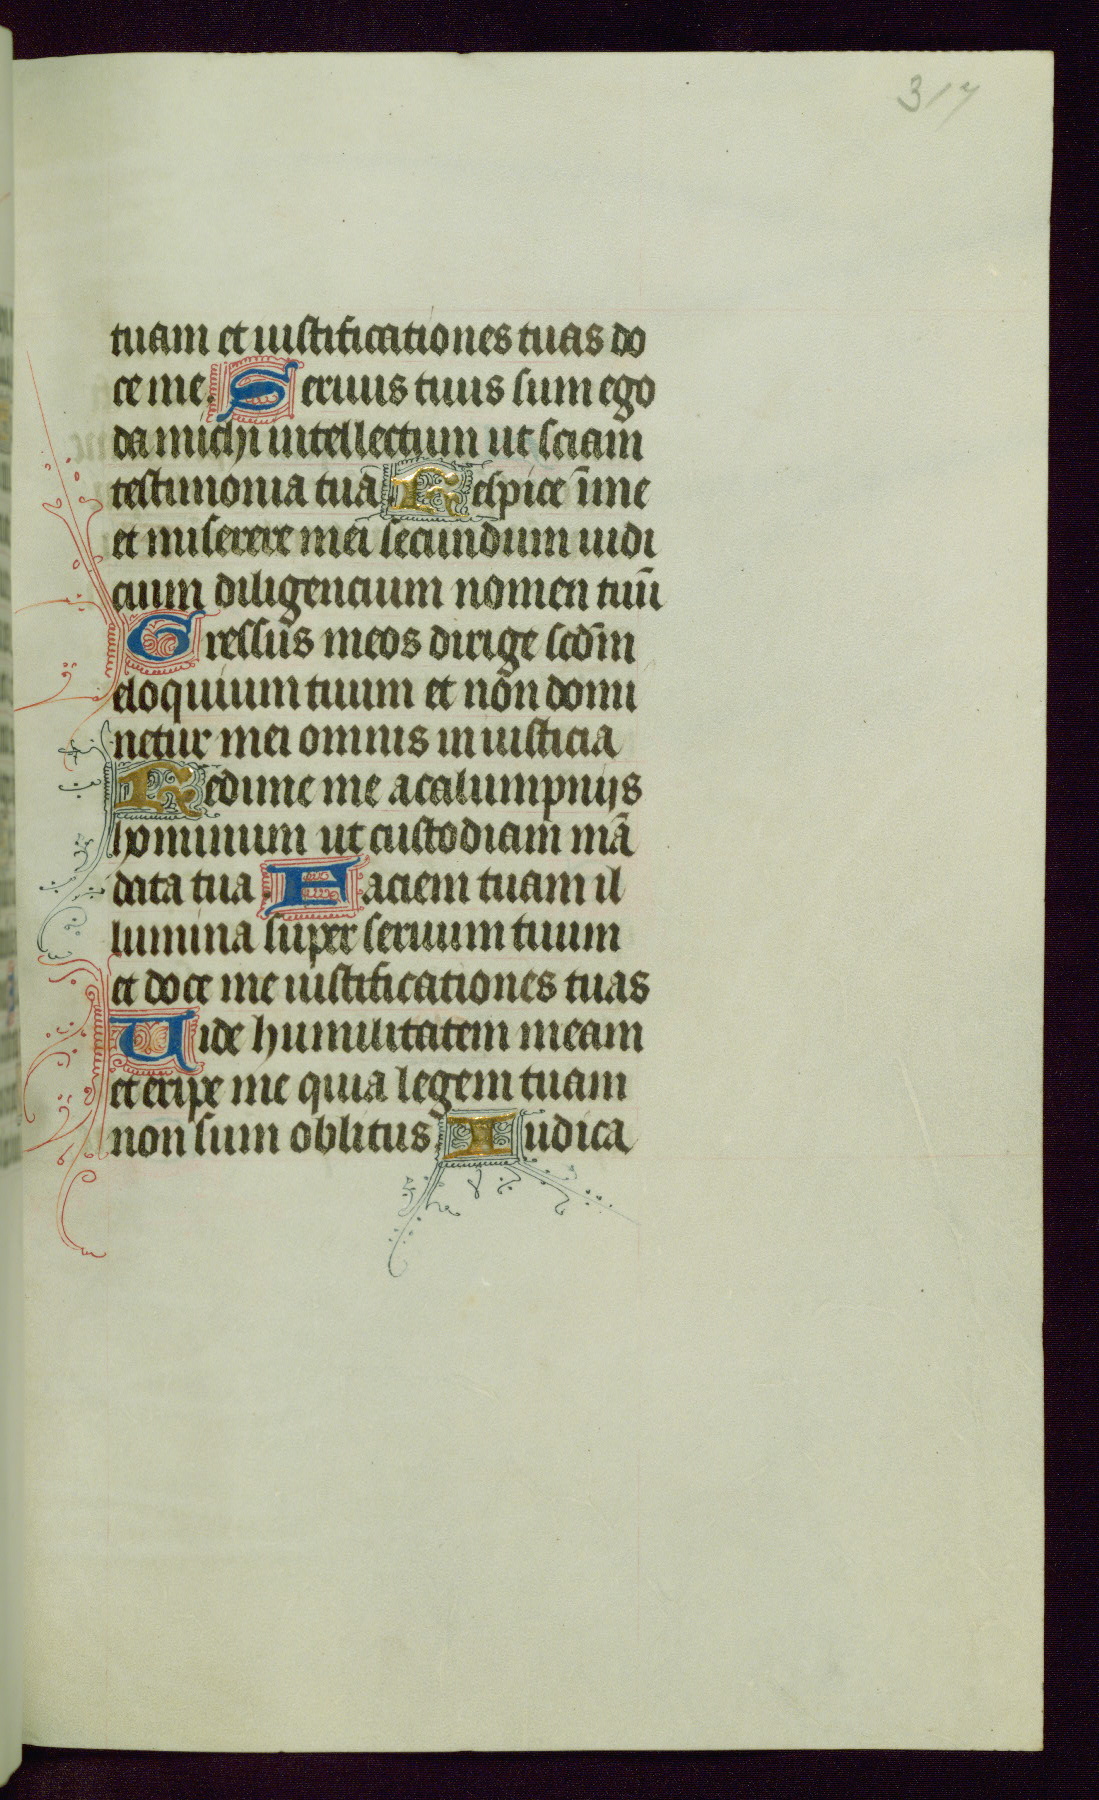 317
tuam et iustificationes tuas do
ce me. Seruus tuus sum ego
da michi intellectum ut sciam
testimonia tua Respice ī me
et miserere mei secundum iudi
cium diligencium nomen tuū
Gressus meos dirige scdm̄
eloquium tuum et non domi
netur mei omnis iniusticia
Redime me a calumpnijs
hominum ut custodiam mā
data tua. Faciem tuam il
lumina super seruum tuum
et doce me iustificationes tuas
Uide humilitatem meam
et eripe me quia legem tuam
non sum oblitus. Iudica